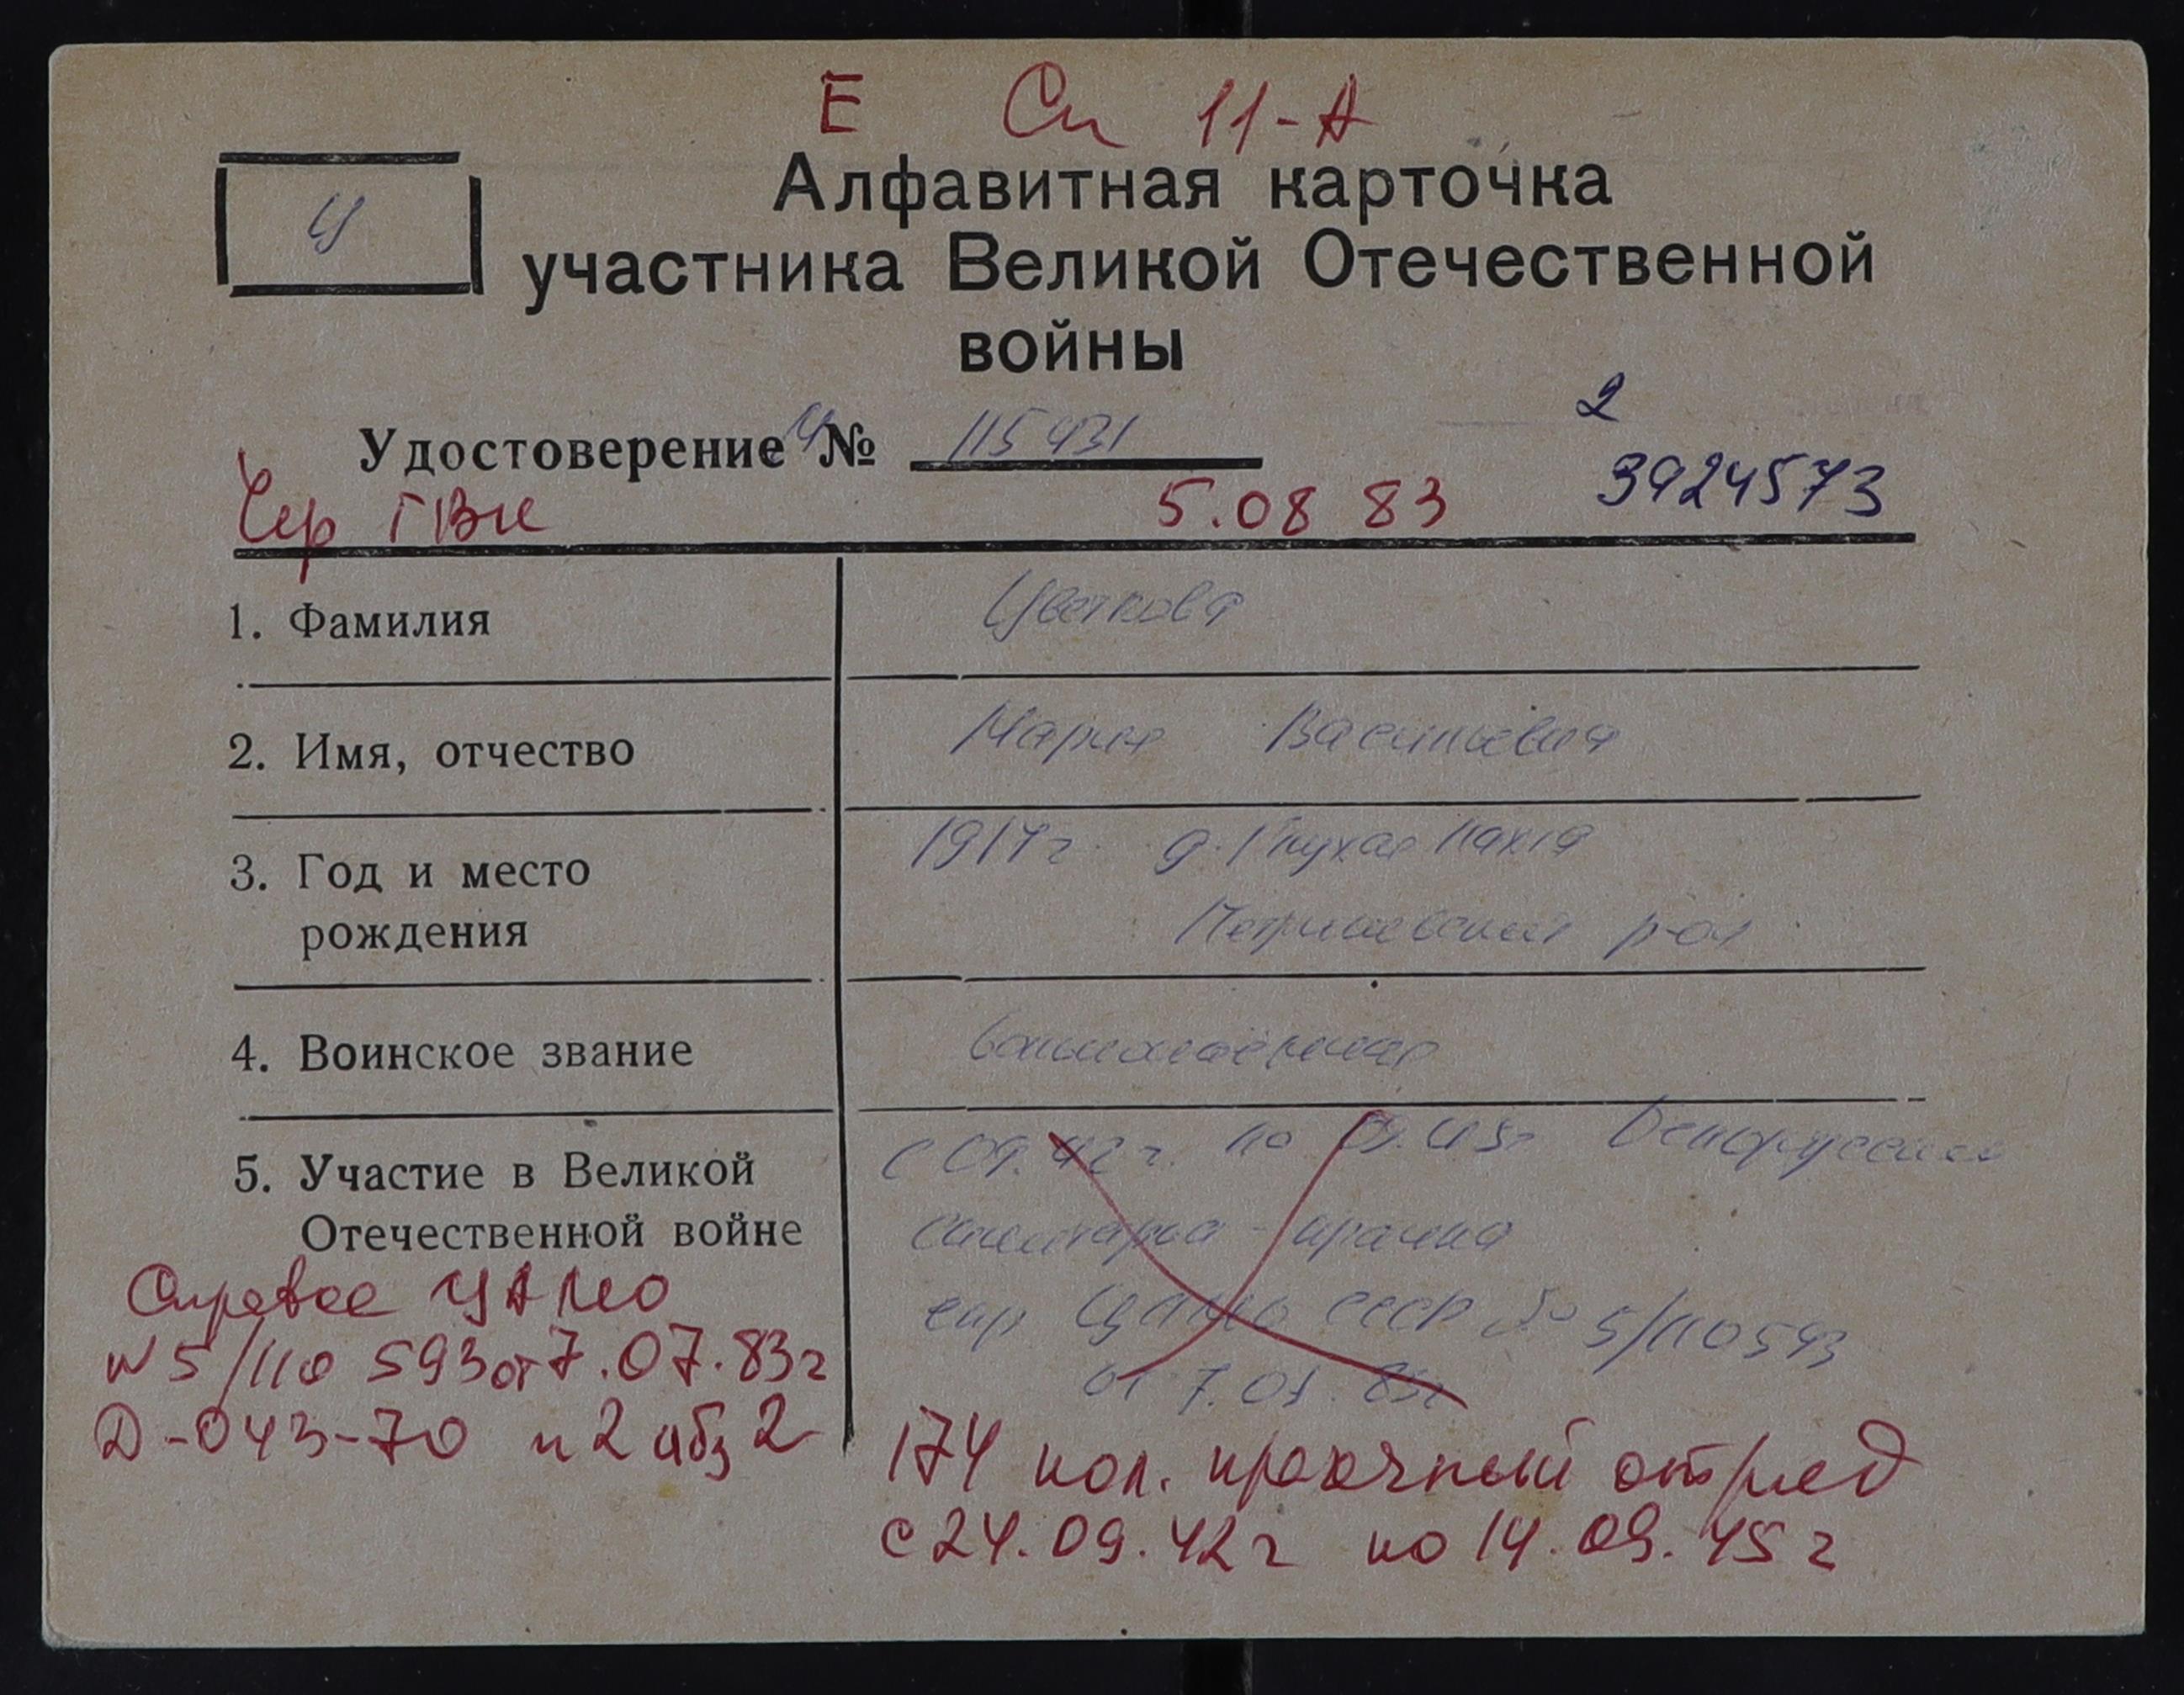 Е Сп 11-А
Алфавитная карточка
Ц
участника Великой Отечественной
войны
2
Удостоверение Ч № 115431
3924573
Чер ГВК 5.08 83
1. Фамилия Цветкова
2. Имя, отчество Мария Васильевна
3. Год и место рождения 1917г. д. Глухая
р-он
4. Воинское звание вольнонаёмная
5. Участие в Великой с 09.42 г. по 09.45г Белорусский
Отечественной войне санитарка - прачка
Справка ЦАМО спр ЦАМО СССР № 5/110593
N 5/110 593 от 7.07.83г от 7.07.83г
Д-043-70 п 2 абз 2 174 пол. прачечный отряд
с 24.09.42 г по 14.09.45 г